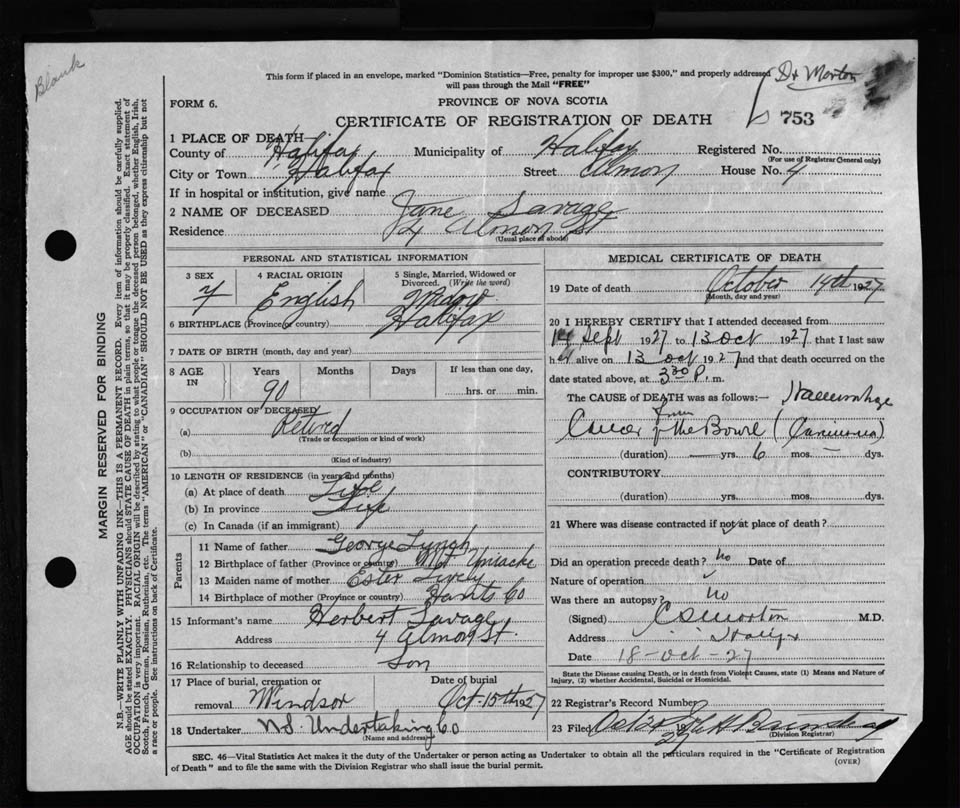 Blank
This form if placed in an envelope, marked "Dominion Statistics—Free, penalty for improper use $300," and properly addressed
will pass through the Mail "FREE"
Dr Morton
FORM 6.
PROVINCE OF NOVA SCOTIA
CERTIFICATE OF REGISTRATION OF DEATH
753
1 PLACE OF DEATH
County of Halifax Municipality of Halifax Registered No.
(For use of Registrar General only)
City or Town Halifax Street Almon House No. 4
If in hospital or institution, give name
2 NAME OF DECEASED Jane Savage
Residence 4 Almon St
(Usual place of abode)
PERSONAL AND STATISTICAL INFORMATION
3 SEX F
4 RACIAL ORIGIN English
5 Single, Married, Widowed or Divorced. (Write the word)
6 BIRTHPLACE (Province or country) Halifax
7 DATE OF BIRTH (month, day and year)
8 AGE IN Years 90 Months Days If less than one day, hrs. or min.
9 OCCUPATION OF DECEASED
(a) Retired
(Trade or occupation or kind of work)
(b)
(Kind of industry)
10 LENGTH OF RESIDENCE (in years and months)
(a) At place of death Life
(b) In province Life
(c) In Canada (if an immigrant)
Parents
11 Name of father George Lynch
12 Birthplace of father (Province or country) Mt Uniacke
13 Maiden name of mother Ester Lively
14 Birthplace of mother (Province or country) Hants Co
15 Informant's name Herbert Savage
Address 4 Almon St.
16 Relationship to deceased Son
17 Place of burial, cremation or removal Windsor Date of burial Oct 15th 1927
18 Undertaker N.S. Undertaking Co
(Name and address)
MEDICAL CERTIFICATE OF DEATH
19 Date of death October 14th 1927
(Month, day and year)
20 I HEREBY CERTIFY that I attended deceased from
14 Sept 1927 to 13 Oct 1927, that I last saw
h er alive on 13 Oct 1927 and that death occurred on
date stated above, at 3 30 P. m.
The CAUSE of DEATH was as follows:— Haemorrhage
from
Cancer of the Bowel (Carcinoma)
(duration) — yrs. 6 mos. — dys.
CONTRIBUTORY
(duration) yrs. mos. dys.
21 Where was disease contracted if not at place of death?
Did an operation precede death? No Date of
Nature of operation
Was there an autopsy? No
(Signed) Morton M.D.
Address Halifax
Date 18-Oct-27
State the Disease causing Death, or in death from Violent Causes, state (1) Means and Nature of
Injury, (2) whether Accidental, Suicidal or Homicidal.
22 Registrar's Record Number
23 Filed Oct
(Division Registrar)
SEC. 46—Vital Statistics Act makes it the duty of the Undertaker or person acting as Undertaker to obtain all the particulars required in the "Certificate of Registration
of Death" and to file the same with the Division Registrar who shall issue the burial permit.
(OVER)
MARGIN RESERVED FOR BINDING
N.B.—WRITE PLAINLY WITH UNFADING INK—THIS IS A PERMANENT RECORD. Every item of information should be carefully supplied.
AGE should be stated EXACTLY. PHYSICIANS should STATE CAUSE OF DEATH in plain terms, so that it may be properly classified. Exact statement of
OCCUPATION is very important. RACIAL ORIGIN will be described by stating to what people or tongue the deceased person belonged, whether English, Irish,
Scotch, French, German, Russian, Ruthenian, etc. The terms "AMERICAN" or "CANADIAN" SHOULD NOT BE USED as they express citizenship but not
a race or people. See instructions on back of Certificate.